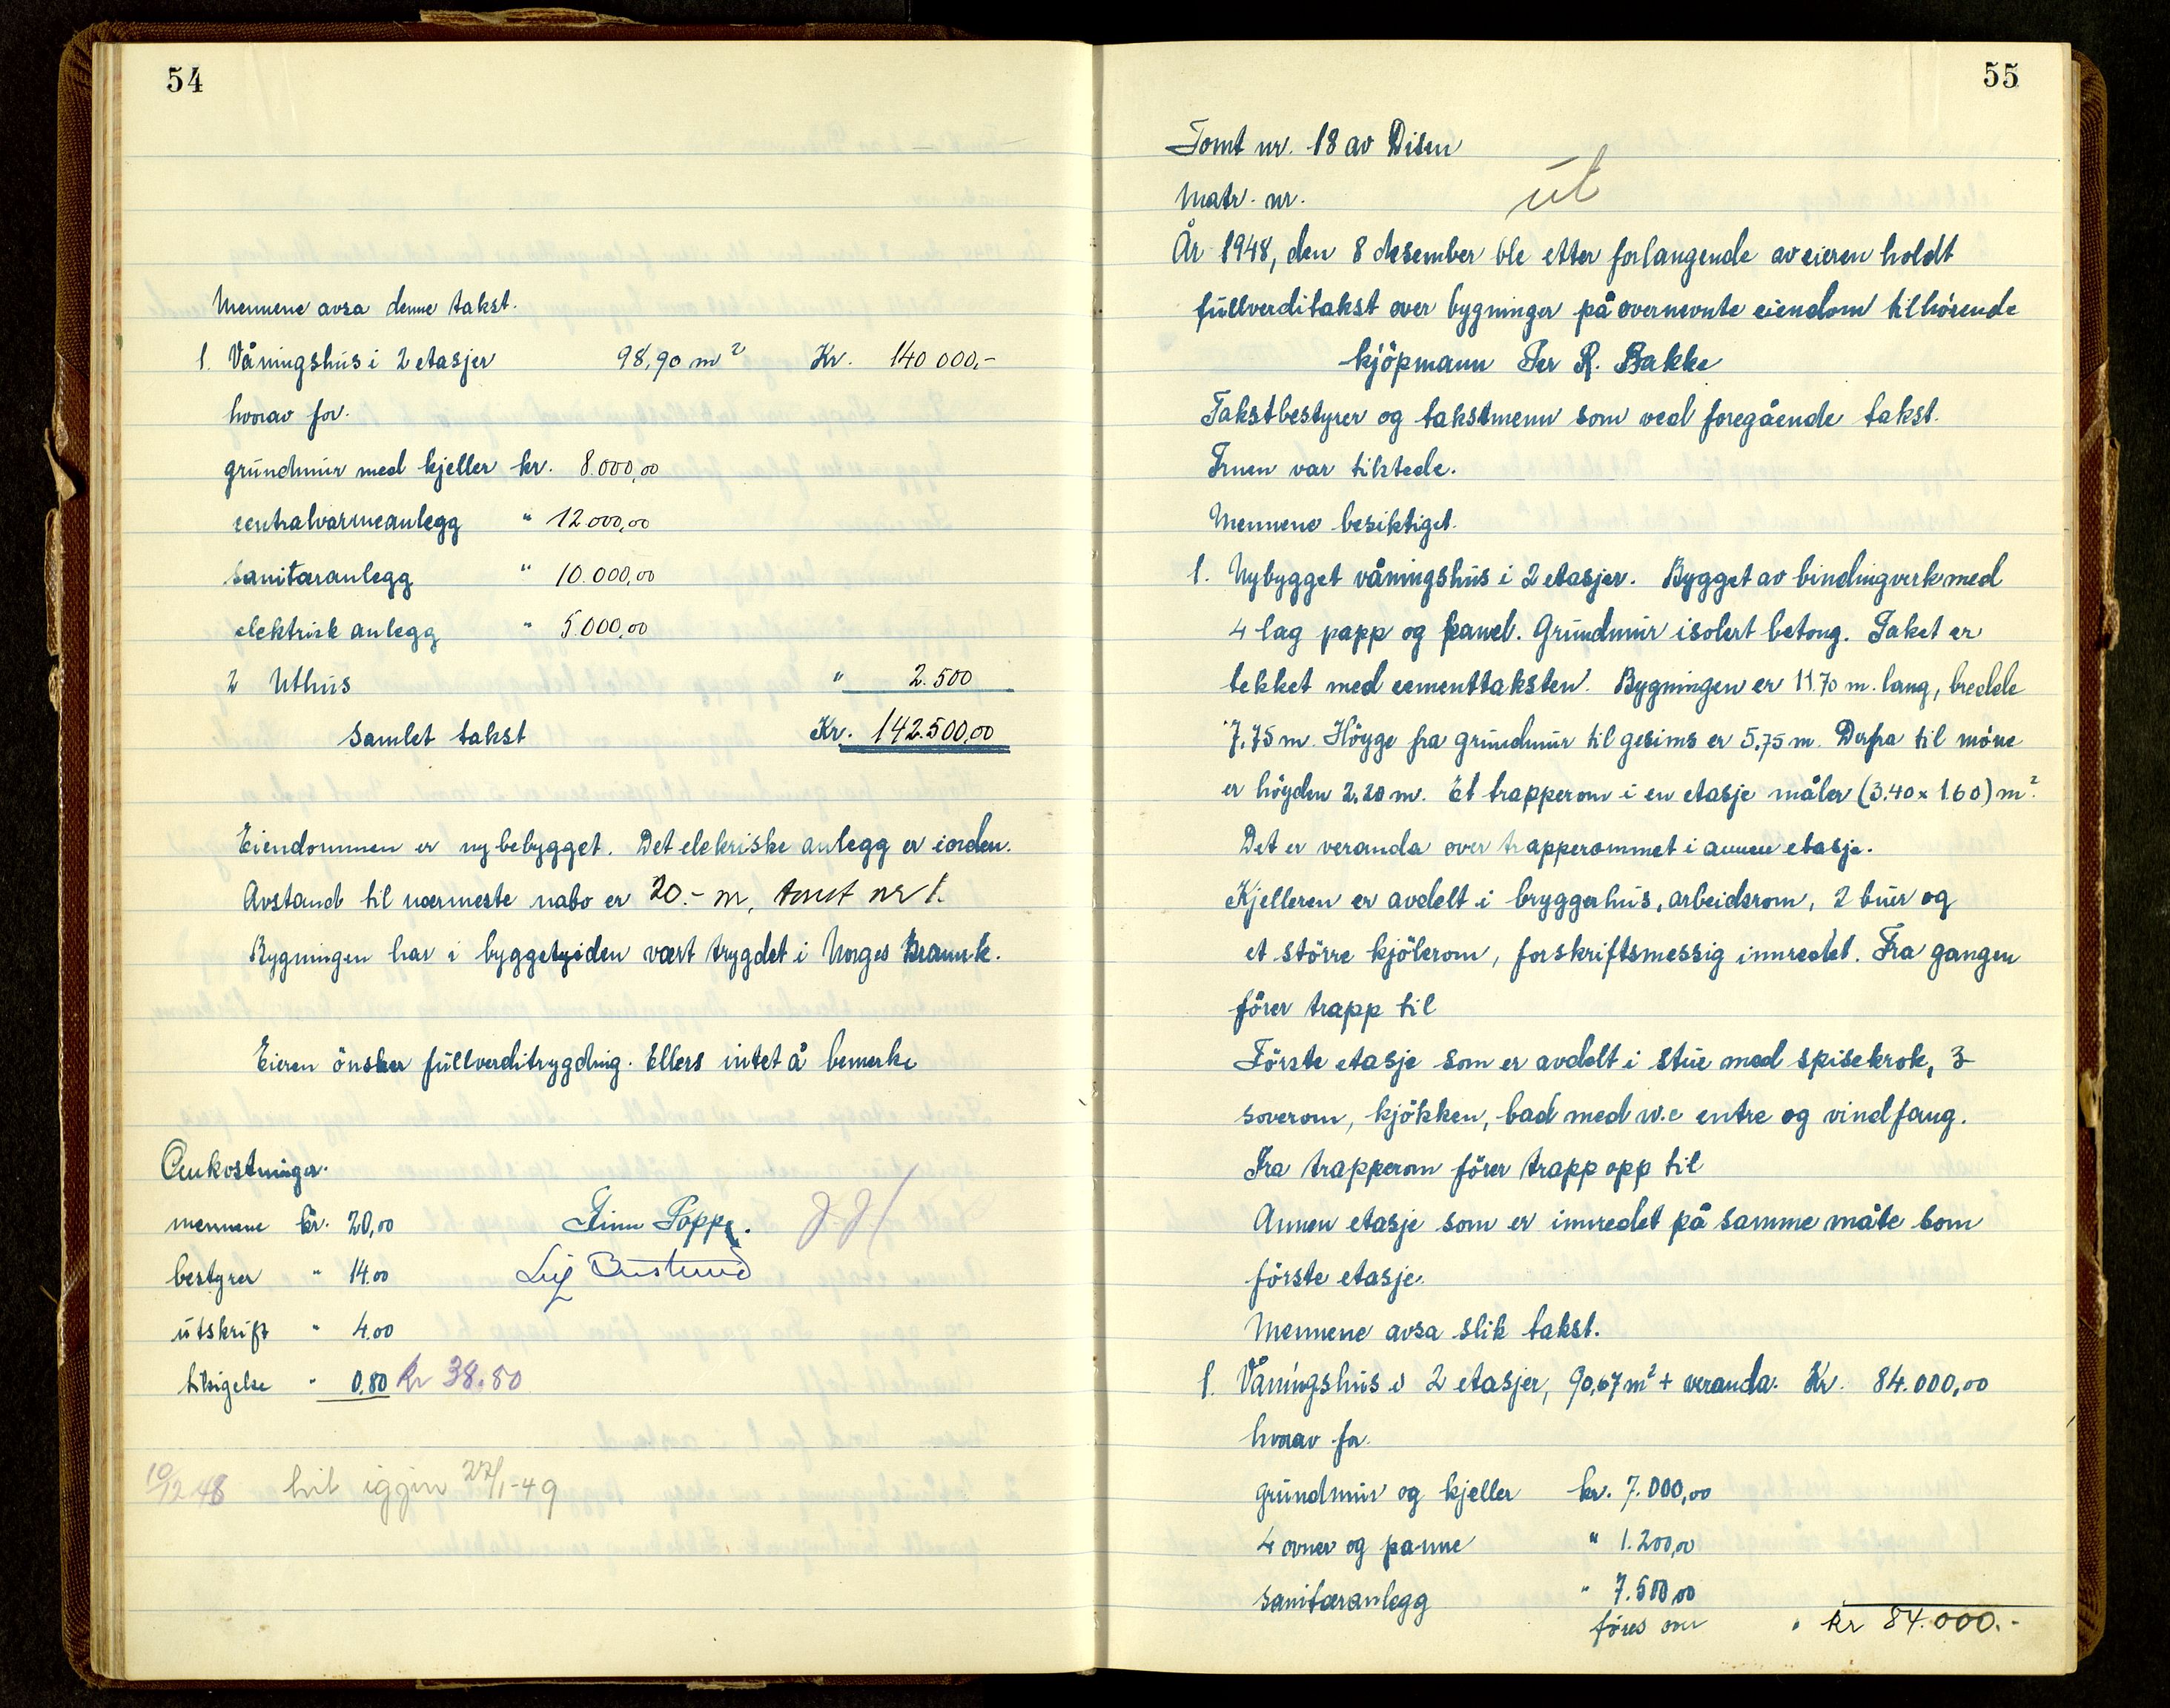 54
Mennene avsa denne takst.
1. Våningshus i 2 etasjer 98,90 m² Kr. 140 000,-
hvorav for.
grundmur med kjeller kr. 8.000,00
centralvarmeanlegg " 12.000,00
sanitæranlegg " 10.000,00
elektrisk anlegg " 5.000,00
2 Uthus " 2.500
Samlet takst Kr. 142.500,00
Eiendommen er nybebygget. Det elekriske anlegg er iorden.
Avstand til nærmeste nabo er 20.- m, tomt nr 1.
Bygningen har i byggetyiden vært trygdet i Norges Brannk.
Eieren önsker fullverditrygding. Ellers intet å bemerke
Omkostninger.
mennene kr. 20,00 Finn Poppe.
bestyrer " 14.00
utskrift " 4.00
tilsigelse " 0,80 Kr 38.80
10/12 48 hit igjen 27/1-49
55
Tomt nr. 18 av Disen
Matr. nr. ut
År 1948, den 8 desember ble etter forlangende av eieren holdt
fullverditakst over bygninger på overnevnte eiendom tilhörende
kjöpmann Per R. Bakke
Takstbestyrer og takstmenn som ved foregående takst.
Fruen var tilstede.
Mennene besiktiget.
1. Nybygget våningshus i 2 etasjer. Bygget av bindingverk med
4 lag papp og panel. Grundmur isolert betong. Taket er
tekket med cementtaksten. Bygningen er 11.70 m. lang, bredde
7,75 m. Höyge fra grundmur til gesims er 5,75 m. Derfra til möne
er höyden 2,20 m. Et trapperom i en etasje måler (3.40 x 1.60) m².
Det er veranda over trapperommet i annen etasje.
Kjelleren er avdelt i bryggerhus, arbeidsrom, 2 buer og
et större kjölerom, forskriftsmessig innredet. Fra gangen
förer trapp til
Förste etasje som er avdelt i stue med spisekrok, 3
soverom, kjökken, bad med w.c entre og vindfang.
Fra trapperom förer trapp opp til
Annen etasje som er innredet på samme måte som
förste etasje.
Mennene avsa slik takst.
1. Våningshus i 2 etasjer, 90,67 m² + veranda. Kr. 84.000,00
hvorav for.
grundmur og kjeller kr. 7.000,00
4 ovner og panne " 1.200,00
sanitæranlegg " 7.500,00
föres over " kr 84.000.-